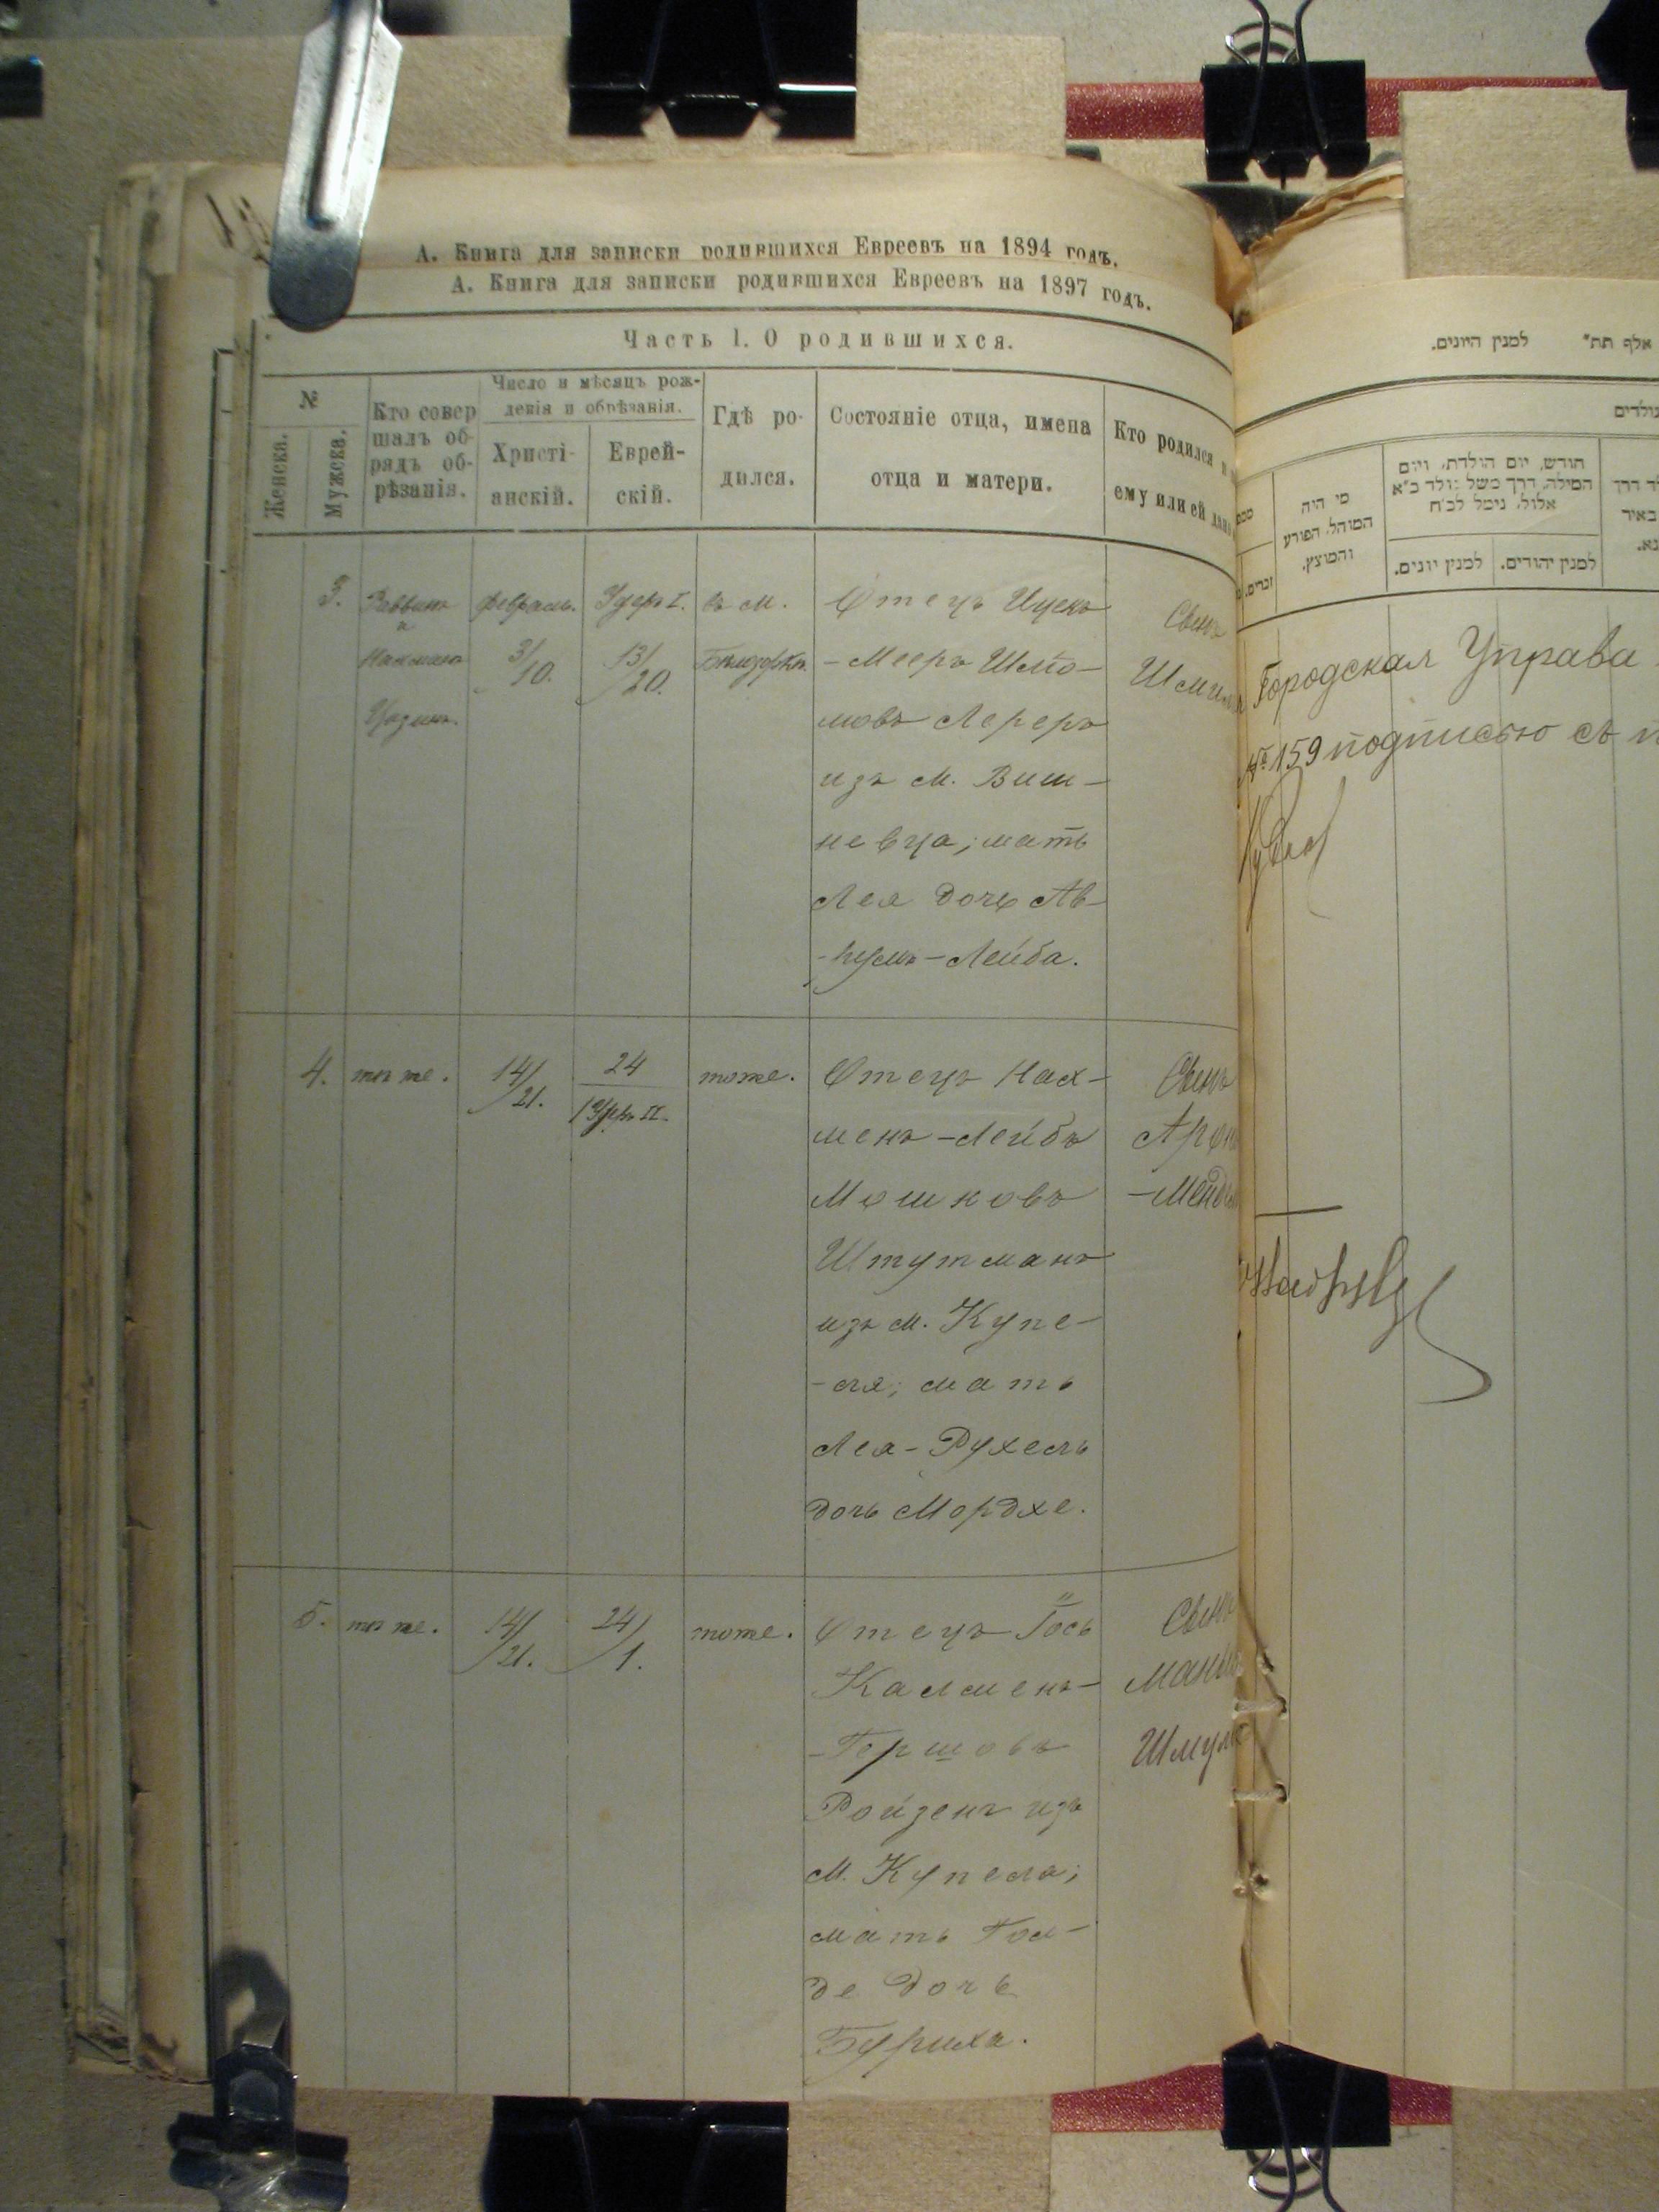 А. Книга для записки родившихся Евреевъ на 1894 годъ.
А. Книга для записки родившихся Евреевъ на 1897 годъ.
Часть 1. О родившихся.
№
Женска.
Мужска.
Кто совер
шалъ об-
рядъ об-
рѣзанія.
Число и мѣсяцъ рож-
денія и обрѣзанія.
Христі-
анскій.
Еврей-
скій.
Гдѣ ро-
дился.
Состояніе отца, имена
отца и матери.
Кто родился и
ему или ей дано
3.
Раввинъ
и
Нахманъ
Февраль.
3/10.
Адеръ I.
13/20.
въ м.
Отецъ Ицекъ
-Мееръ Шліо-
мовъ Лереръ
изъ м. Виш-
невца; мать
Лея дочь Ав-
-румъ-Лейба.
Сынъ
4.
тоже.
14/21.
24
1 Адеръ II.
тоже.
Отецъ Нах-
менъ-Лейбъ
Мошковъ
Штутманъ
изъ м. Купе-
-ля; мать
Лея-Рухель
дочь Мордхе.
Сынъ
5.
тоже.
14/21.
24/1.
тоже.
Отецъ Іось
Калменъ-
-Гершовъ
Ройзенъ изъ
м. Купеля;
мать Гол-
де дочь
Буриха.
Сынъ
למנין היונים.
אלף תת"
חודש, יום הולדת, ויום
המילה, דרך משל נולד כ"א
אלול, נימל לכ"ח
מי היה
המוהל, הפורע
והמוצץ.
למנין יהודים.
למנין יונים.
זכרים.
Городская Управа
№ 159 подписью съ